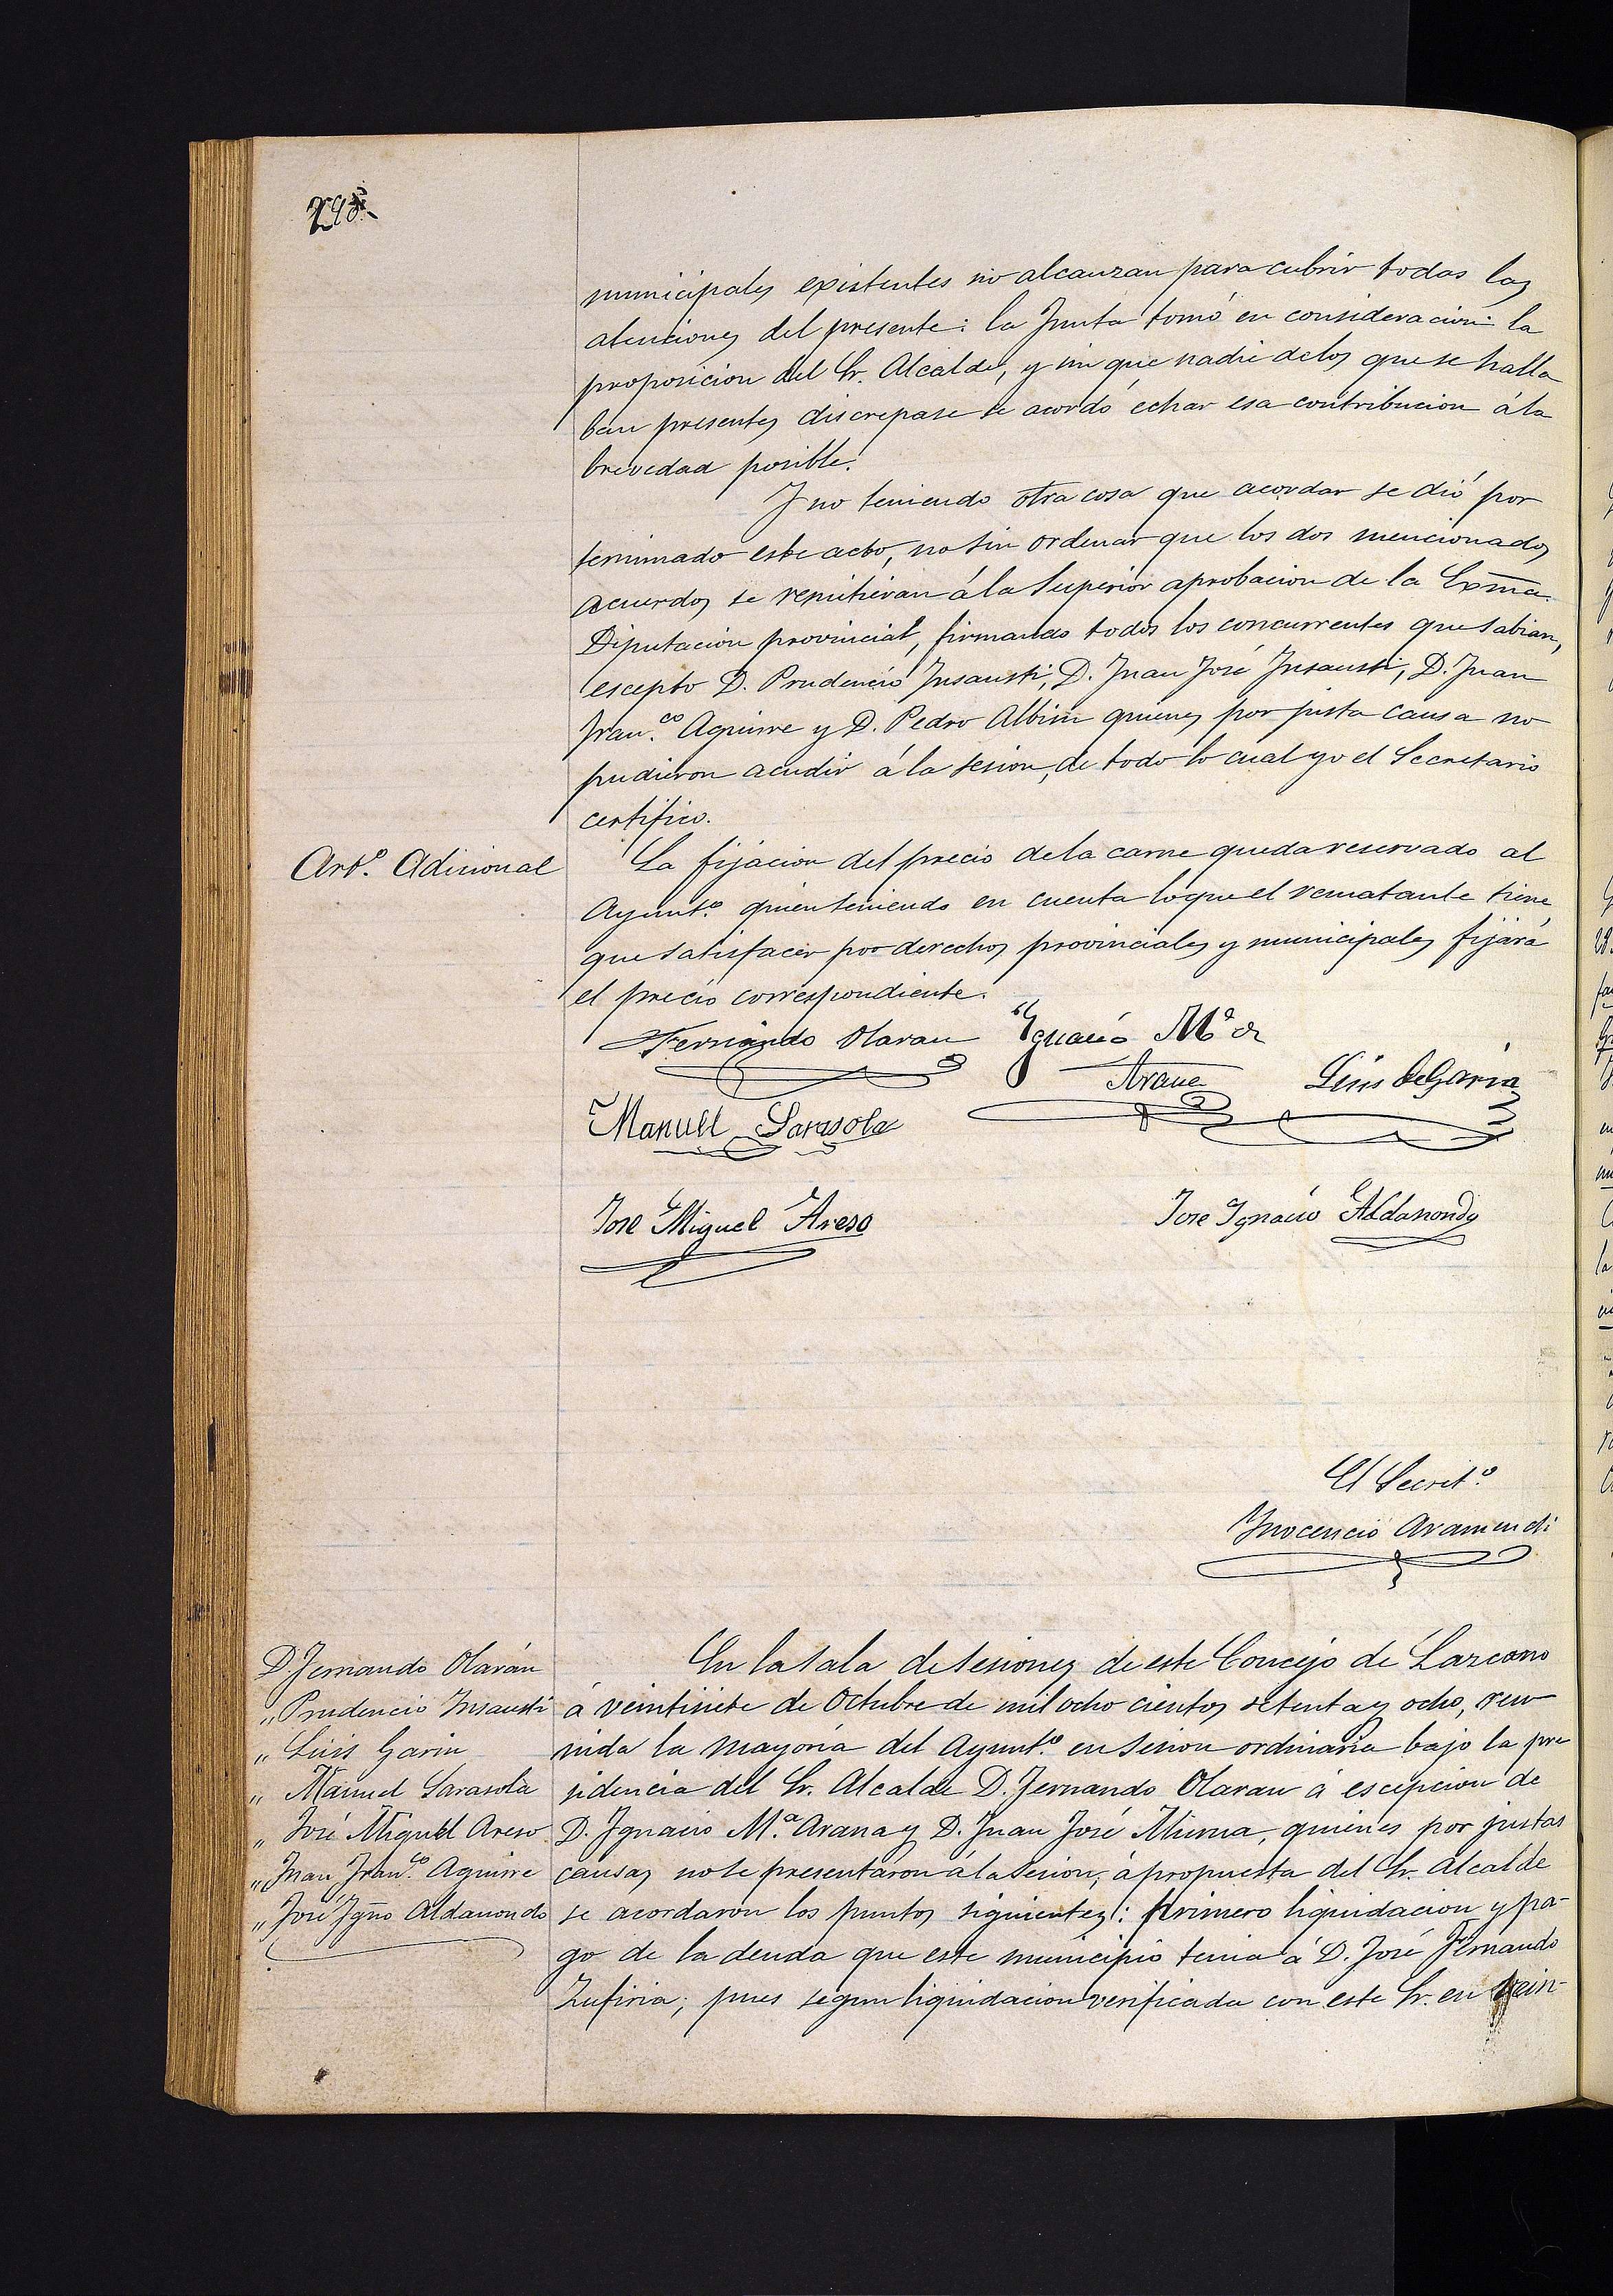 municipales existentes no alcanzan para cubrir todas las
atenciones del presente: la Junta tomó en consideracion la
proposicion del Sr. Alcalde, y sin que nadie de los que se halla
ban presentes discrepase se acordó echar esa contribucion á la
brevedad posible.
Y no teniendo otra cosa que acordar se dió por
terminado este acto, no sin ordenar que los dos mencionados
acuerdos se remitieran á la Superior aprobacion de la Exma.
Diputacion provincial, firmando todos los concurrentes que sabian,
escepto D. Prudencio Insausti, D. Juan José Insausti, D. Juan
Fran.co Aguirre y D. Pedro Albisu quienes por justa causa no
pudieron acudir á la sesion, de todo lo cual yo el Secretario
certifico.
Art.o Adicional
La fijacion del precio de la carne queda reservado al
Ayunt.o quien teniendo en cuenta lo que el rematante tiene
que satisfacer por derechos provinciales y municipales fijará
el precio correspondiente.
Fernando Olaran Ignacio M.a de
Arana Luis de Garin
Manuel Sarasola
Jose Miguel Areso Jose Ignacio Aldanondo
El Secret.o
Inocencio Aramendi
D. Fernando Olarán
" Prudencio Insausti
" Luis Garin
" Manuel Sarasola
" José Miguel Areso
" Juan Fran.co Aguirre
" José Ygño Aldanondo
En la sala de sesiones de este Concejo de Lazcano
á veintisiete de Octubre de mil ocho cientos setenta y ocho, reu
nida la mayoría del Ayunt.o en sesion ordinaria bajo la pre
sidencia del Sr. Alcalde D. Fernando Olaran á escepcion de
D. Ignacio M.a Arana y D. Juan José quienes por justas
causas no se presentáron á la sesion, á propuesta del Sr. Alcalde
se acordaron los puntos siguientes: Primero liquidacion y pa-
go de la deuda que este municipio tenia á D. José Fernando
Zufiria; pues segun liquidacion verificada con este Sr. en vein-